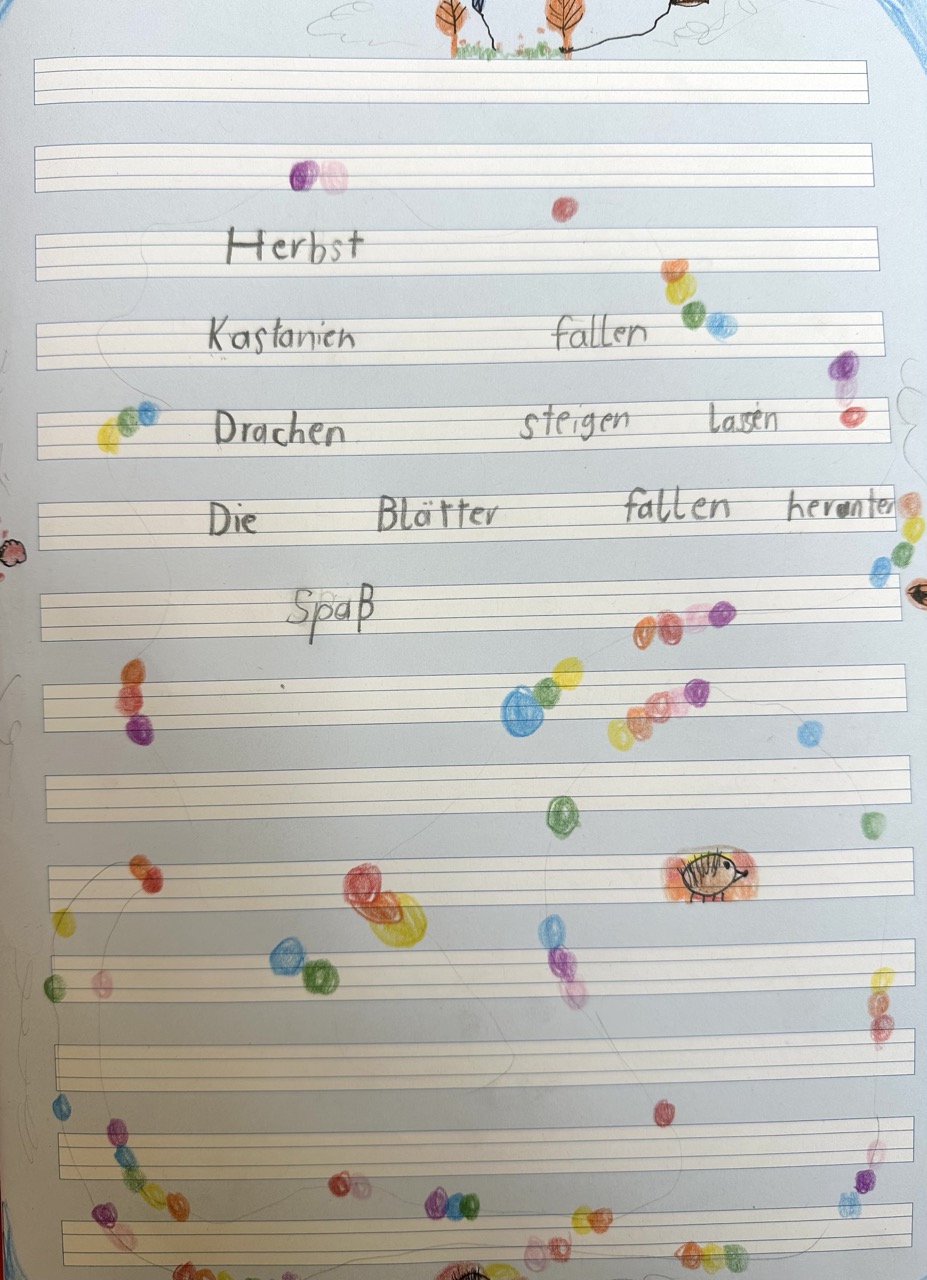 Herbst
Kastanien fallen
Drachen steigen lassen
Die Blätter fallen herunter
Spaß